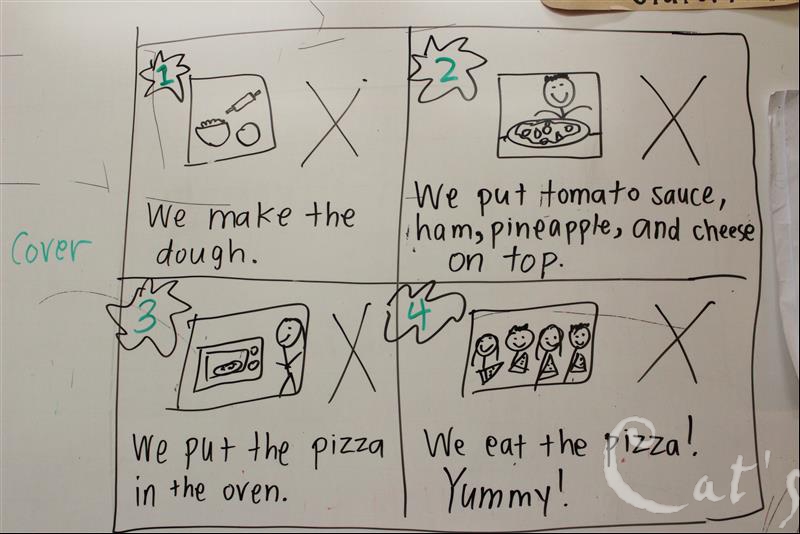 1
We make the
dough.
2
We put tomato sauce,
ham, pineapple, and cheese
on top.
Cover
3
We put the pizza
in the oven.
4
We eat the pizza!
Yummy!
Cat's